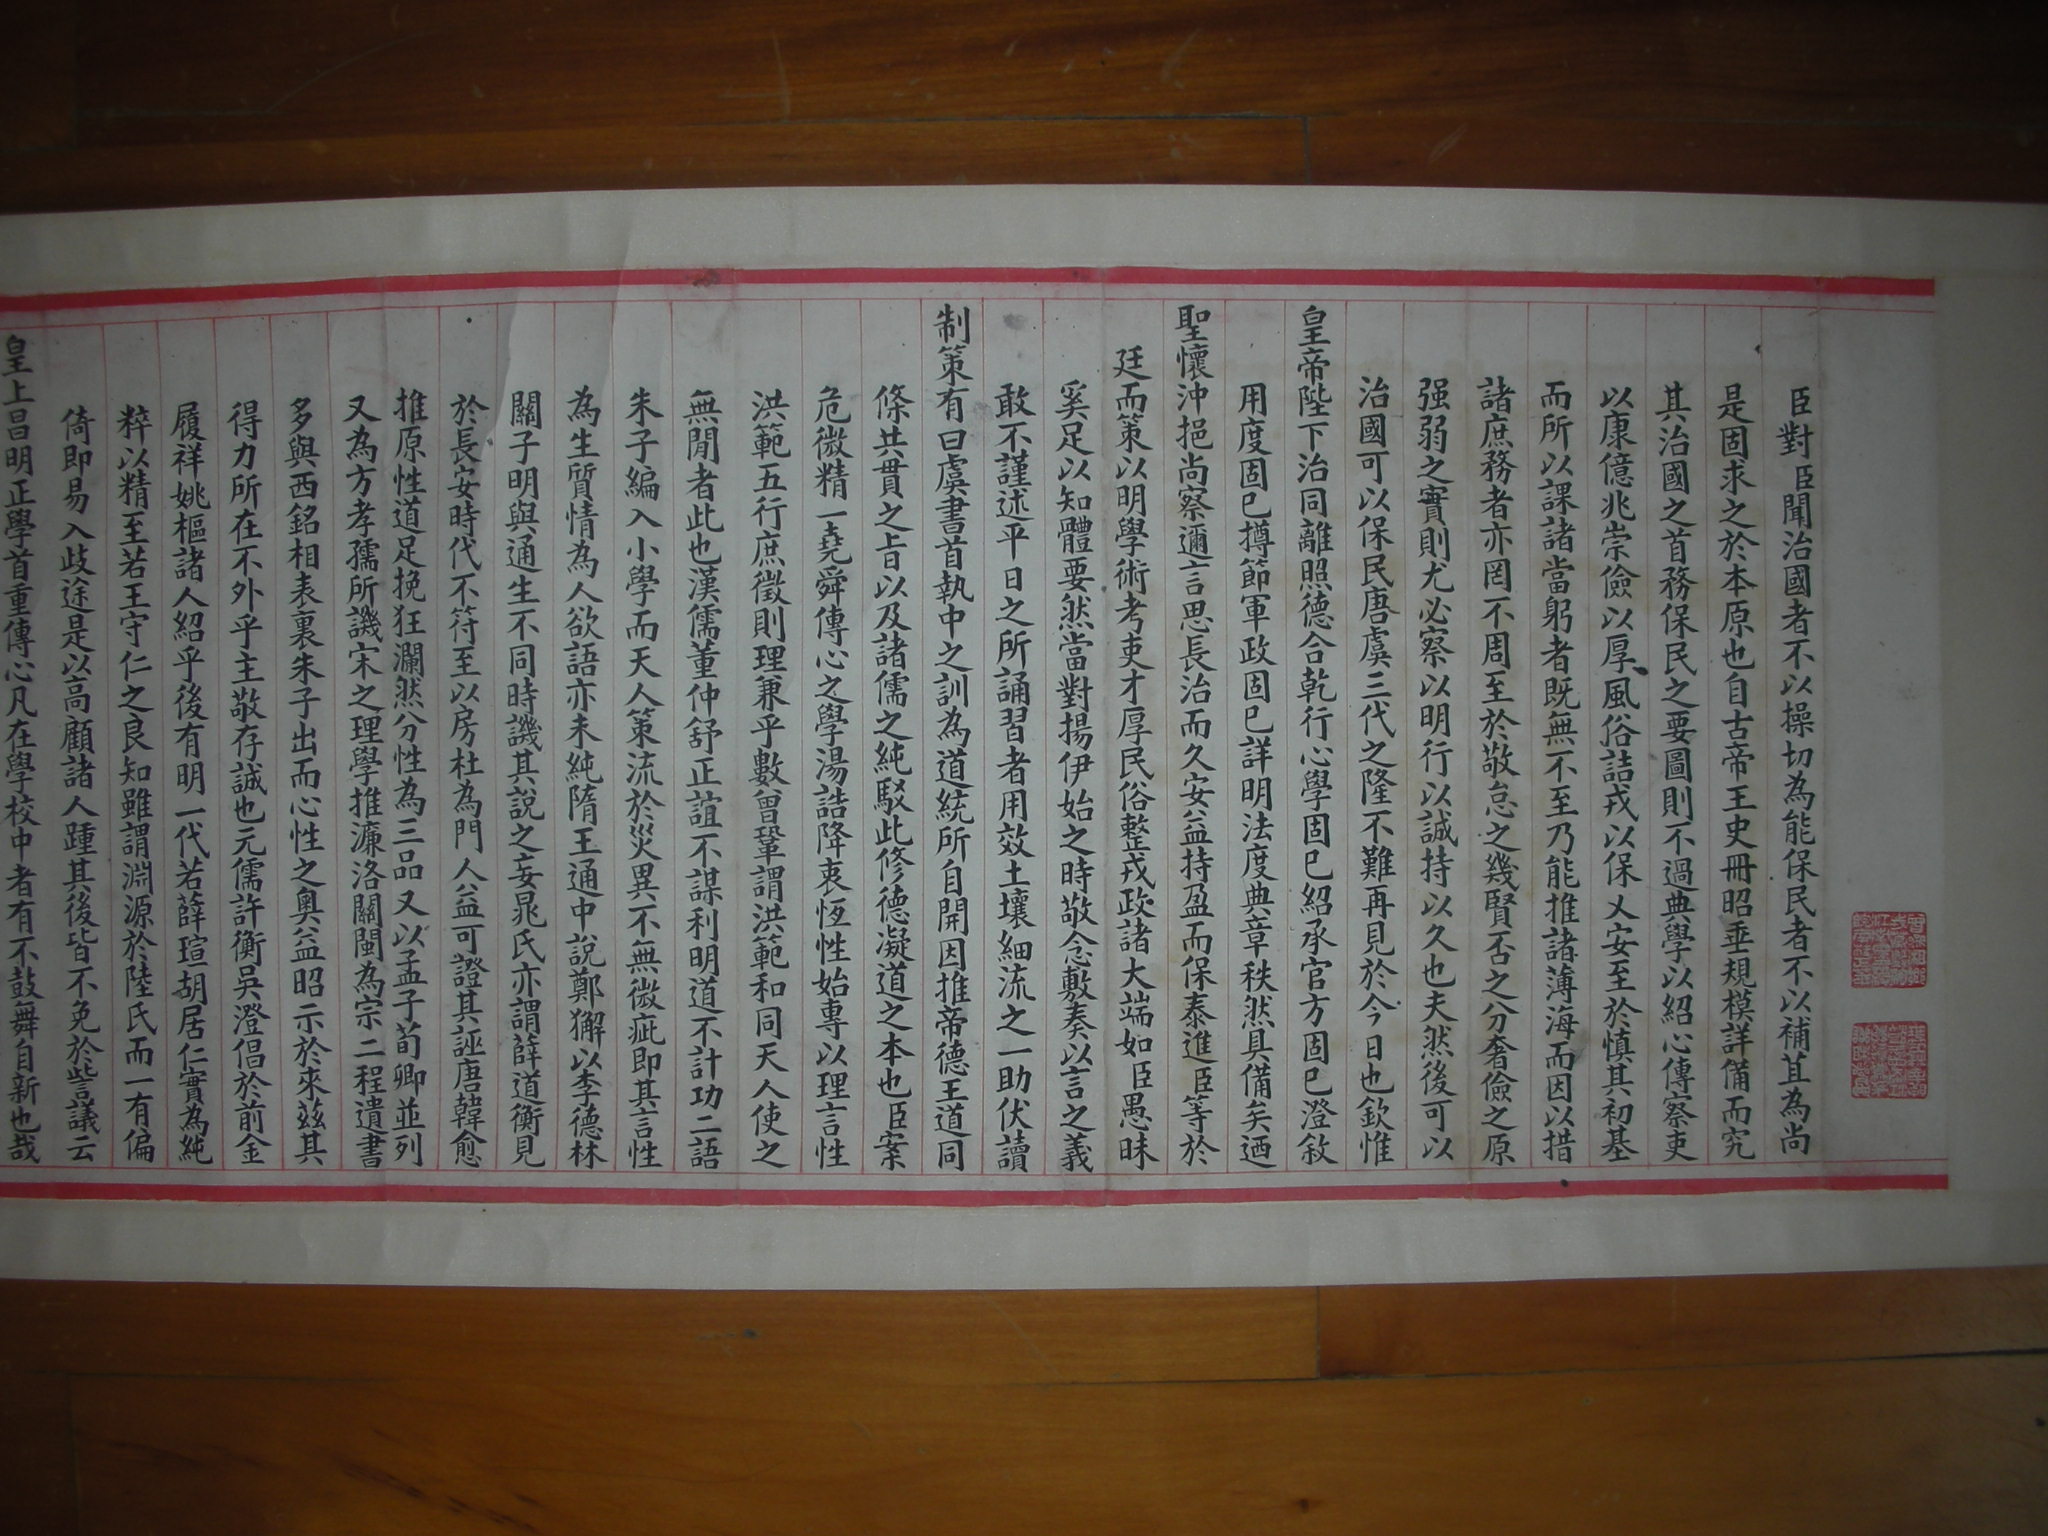 臣對臣聞治國者不以操切為能保民者不以補苴為尚
是固求之於本原也自古帝王史冊昭垂規模詳備而究
其治國之首務保民之要圖則不過典學以紹心傳察吏
以康億兆崇儉以厚風俗詰戎以保乂安至於慎其初基
而所以課諸當躬者既無不至乃能推諸薄海而因以措
諸庶務者亦罔不周至於敬怠之幾賢否之分奢儉之原
强弱之實則尤必察以明行以誠持以久也夫然後可以
治國可以保民唐虞三代之隆不難再見於今日也欽惟
皇帝陛下治同離照德合乾行心學固已紹承官方固已澄敘
用度固已撙節軍政固已詳明法度典章秩然具備矣迺
聖懷沖挹尚察邇言思長治而久安益持盈而保泰進臣等於
廷而策以明學術考吏才厚民俗整戎政諸大端如臣愚昧
奚足以知體要然當對揚伊始之時敬念敷奏以言之義
敢不謹述平日之所誦習者用效土壤細流之一助伏讀
制策有曰虞書首執中之訓為道統所自開因推帝德王道同
條共貫之旨以及諸儒之純駁此修德凝道之本也臣案
危微精一堯舜傳心之學湯誥降衷恆性始專以理言性
洪範五行庶徵則理兼乎數曾鞏謂洪範和同天人使之
無間者此也漢儒董仲舒正誼不謀利明道不計功二語
朱子編入小學而天人策流於災異不無微疵即其言性
為生質情為人欲語亦未純隋王通中說鄭獬以李德林
關子明與通生不同時譏其說之妄晁氏亦謂薛道衡見
於長安時代不符至以房杜為門人益可證其誣唐韓愈
推原性道足挽狂瀾然分性為三品又以孟子荀卿並列
又為方孝孺所譏宋之理學推濂洛關閩為宗二程遺書
多與西銘相表裏朱子出而心性之奧益昭示於來茲其
得力所在不外乎主敬存誠也元儒許衡吳澄倡於前金
履祥姚樞諸人紹乎後有明一代若薛瑄胡居仁實為純
粹以精至若王守仁之良知雖謂淵源於陸氏而一有偏
倚即易入歧途是以高顧諸人踵其後皆不免於訾議云
皇上昌明正學首重傳心凡在學校中者有不鼓舞自新也哉